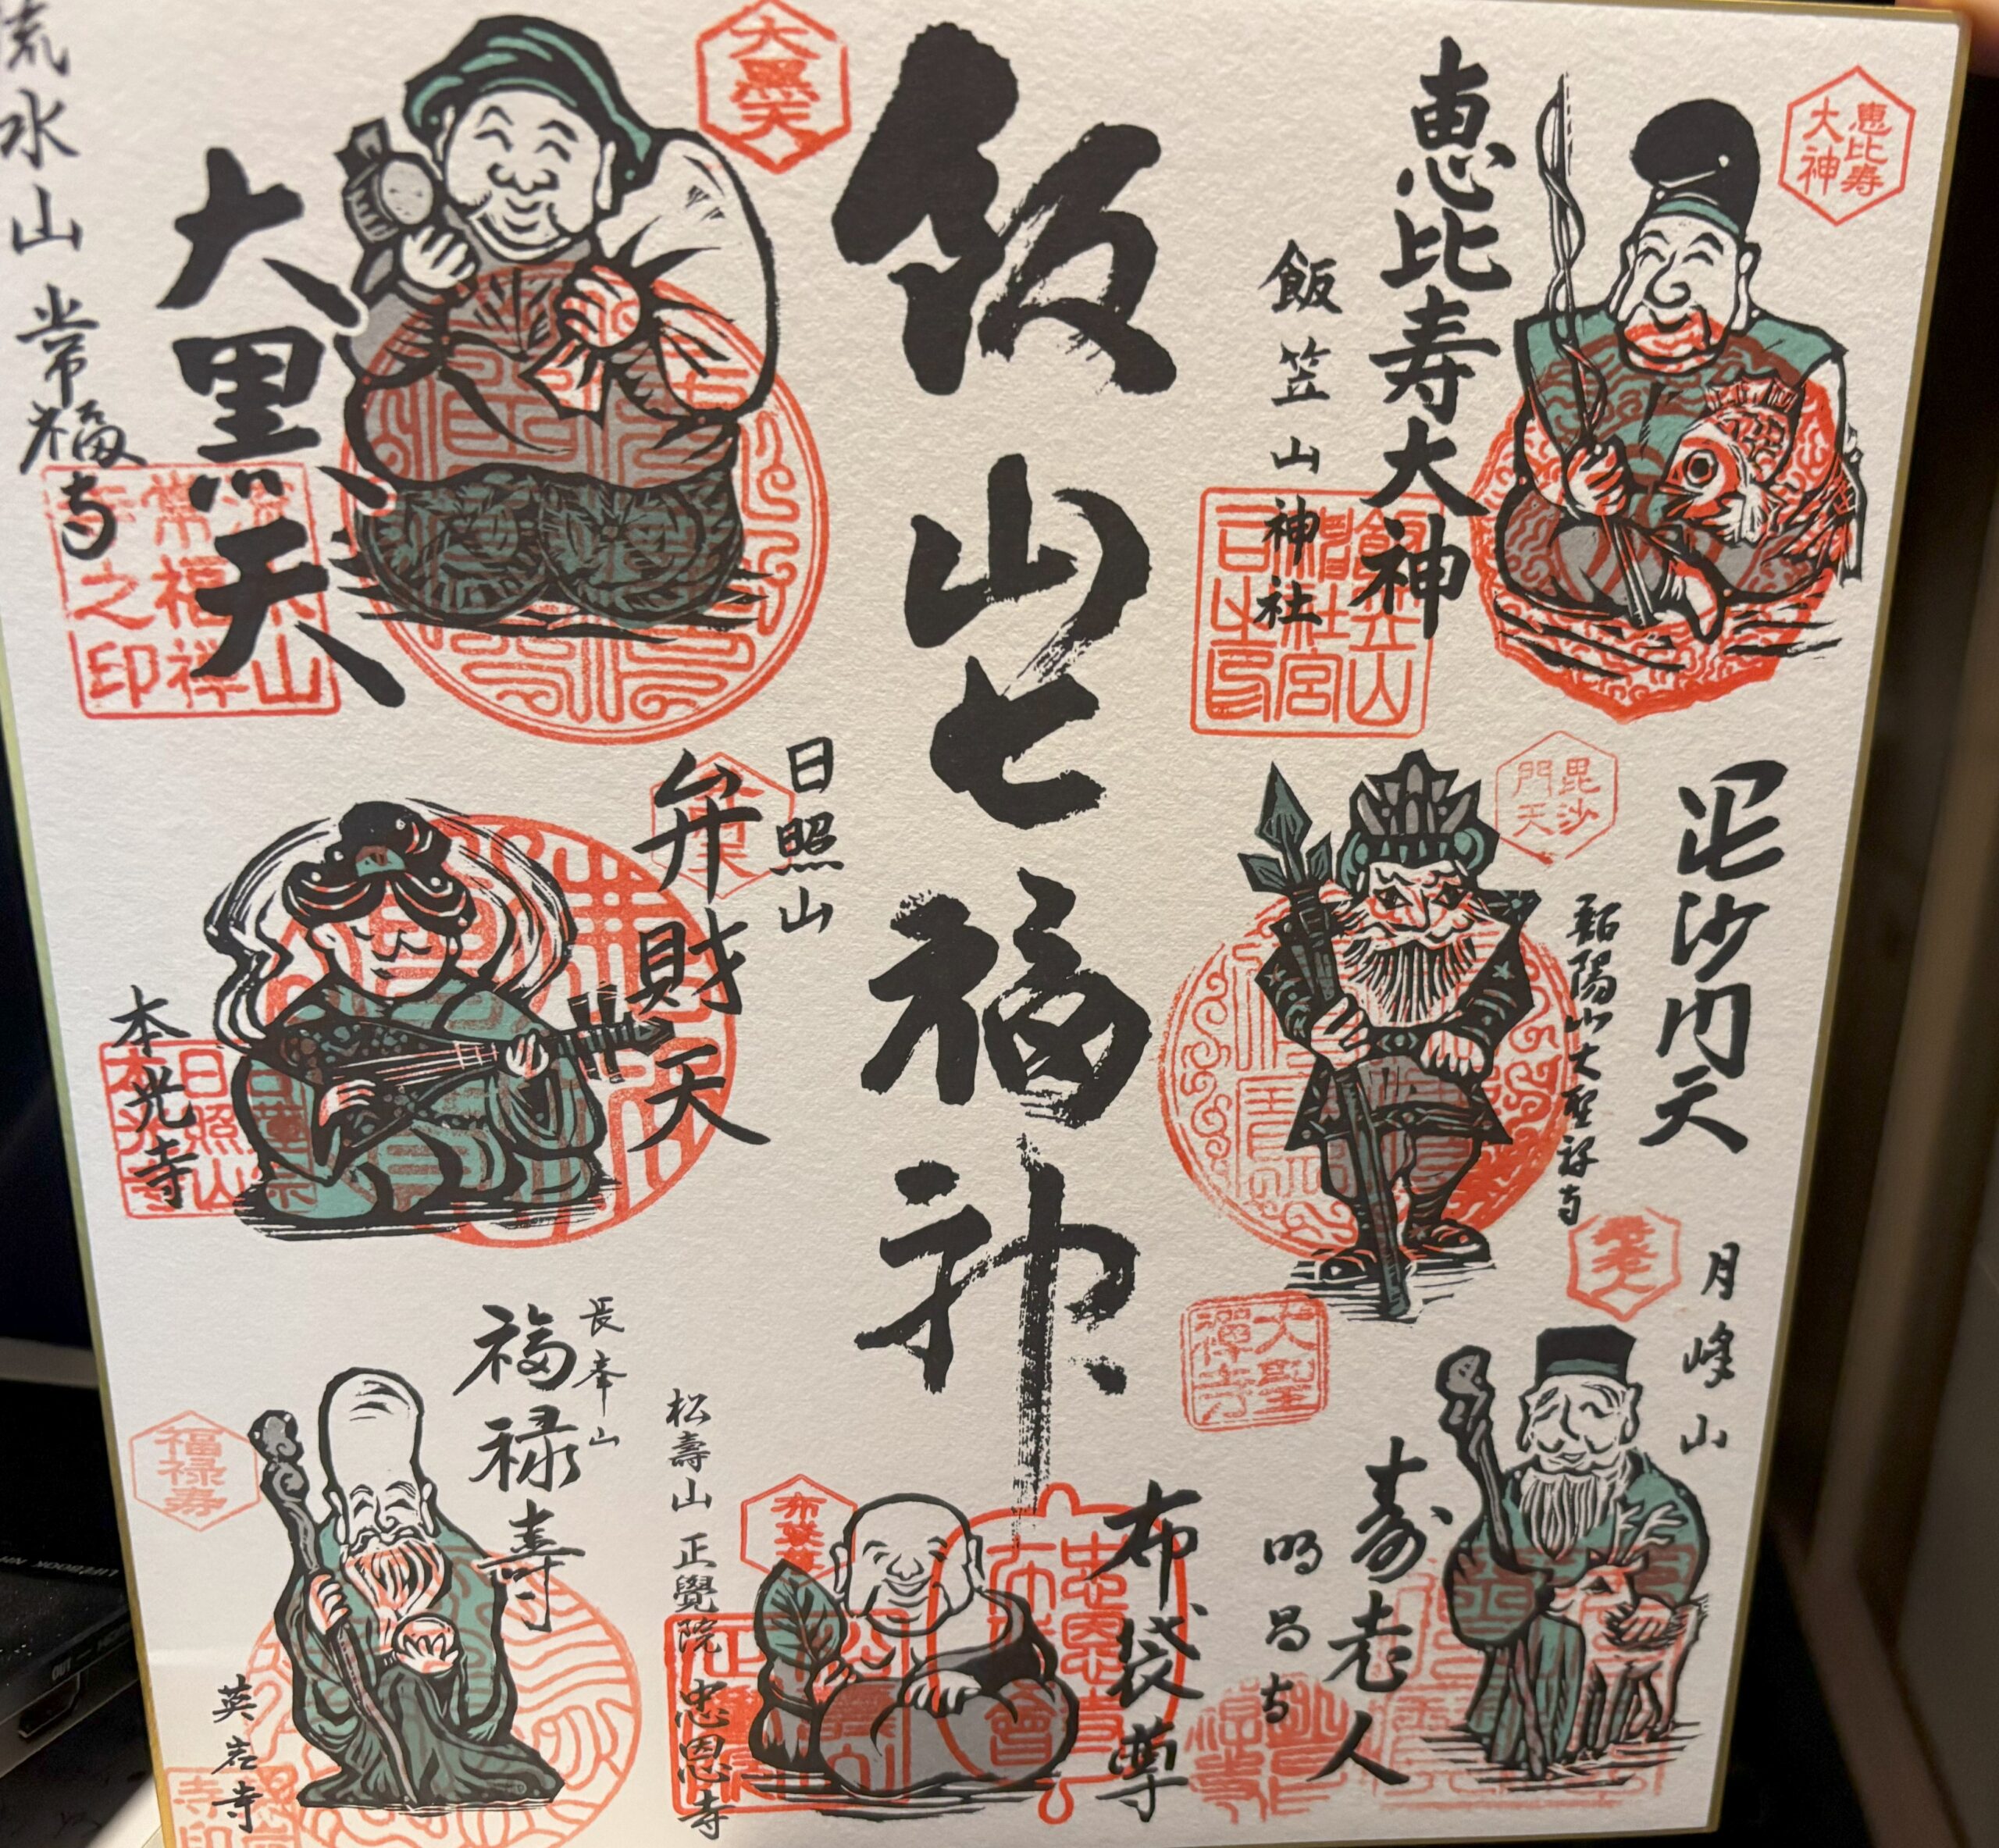 恵比寿大神
飯笠山神社
恵比寿
大神
毘沙門天
大聖禅寺
毘沙
門天
大聖
禅寺
月峰山
寿老人
明昌寺
飯山七福神
布袋尊
松壽山 正覺院 忠恩寺
大黒天
大黒天
流水山 常福寺
日照山
弁財天
本光寺
長峯山
福禄壽
英岩寺
福禄寿
LIFEBOOK NH
OUT